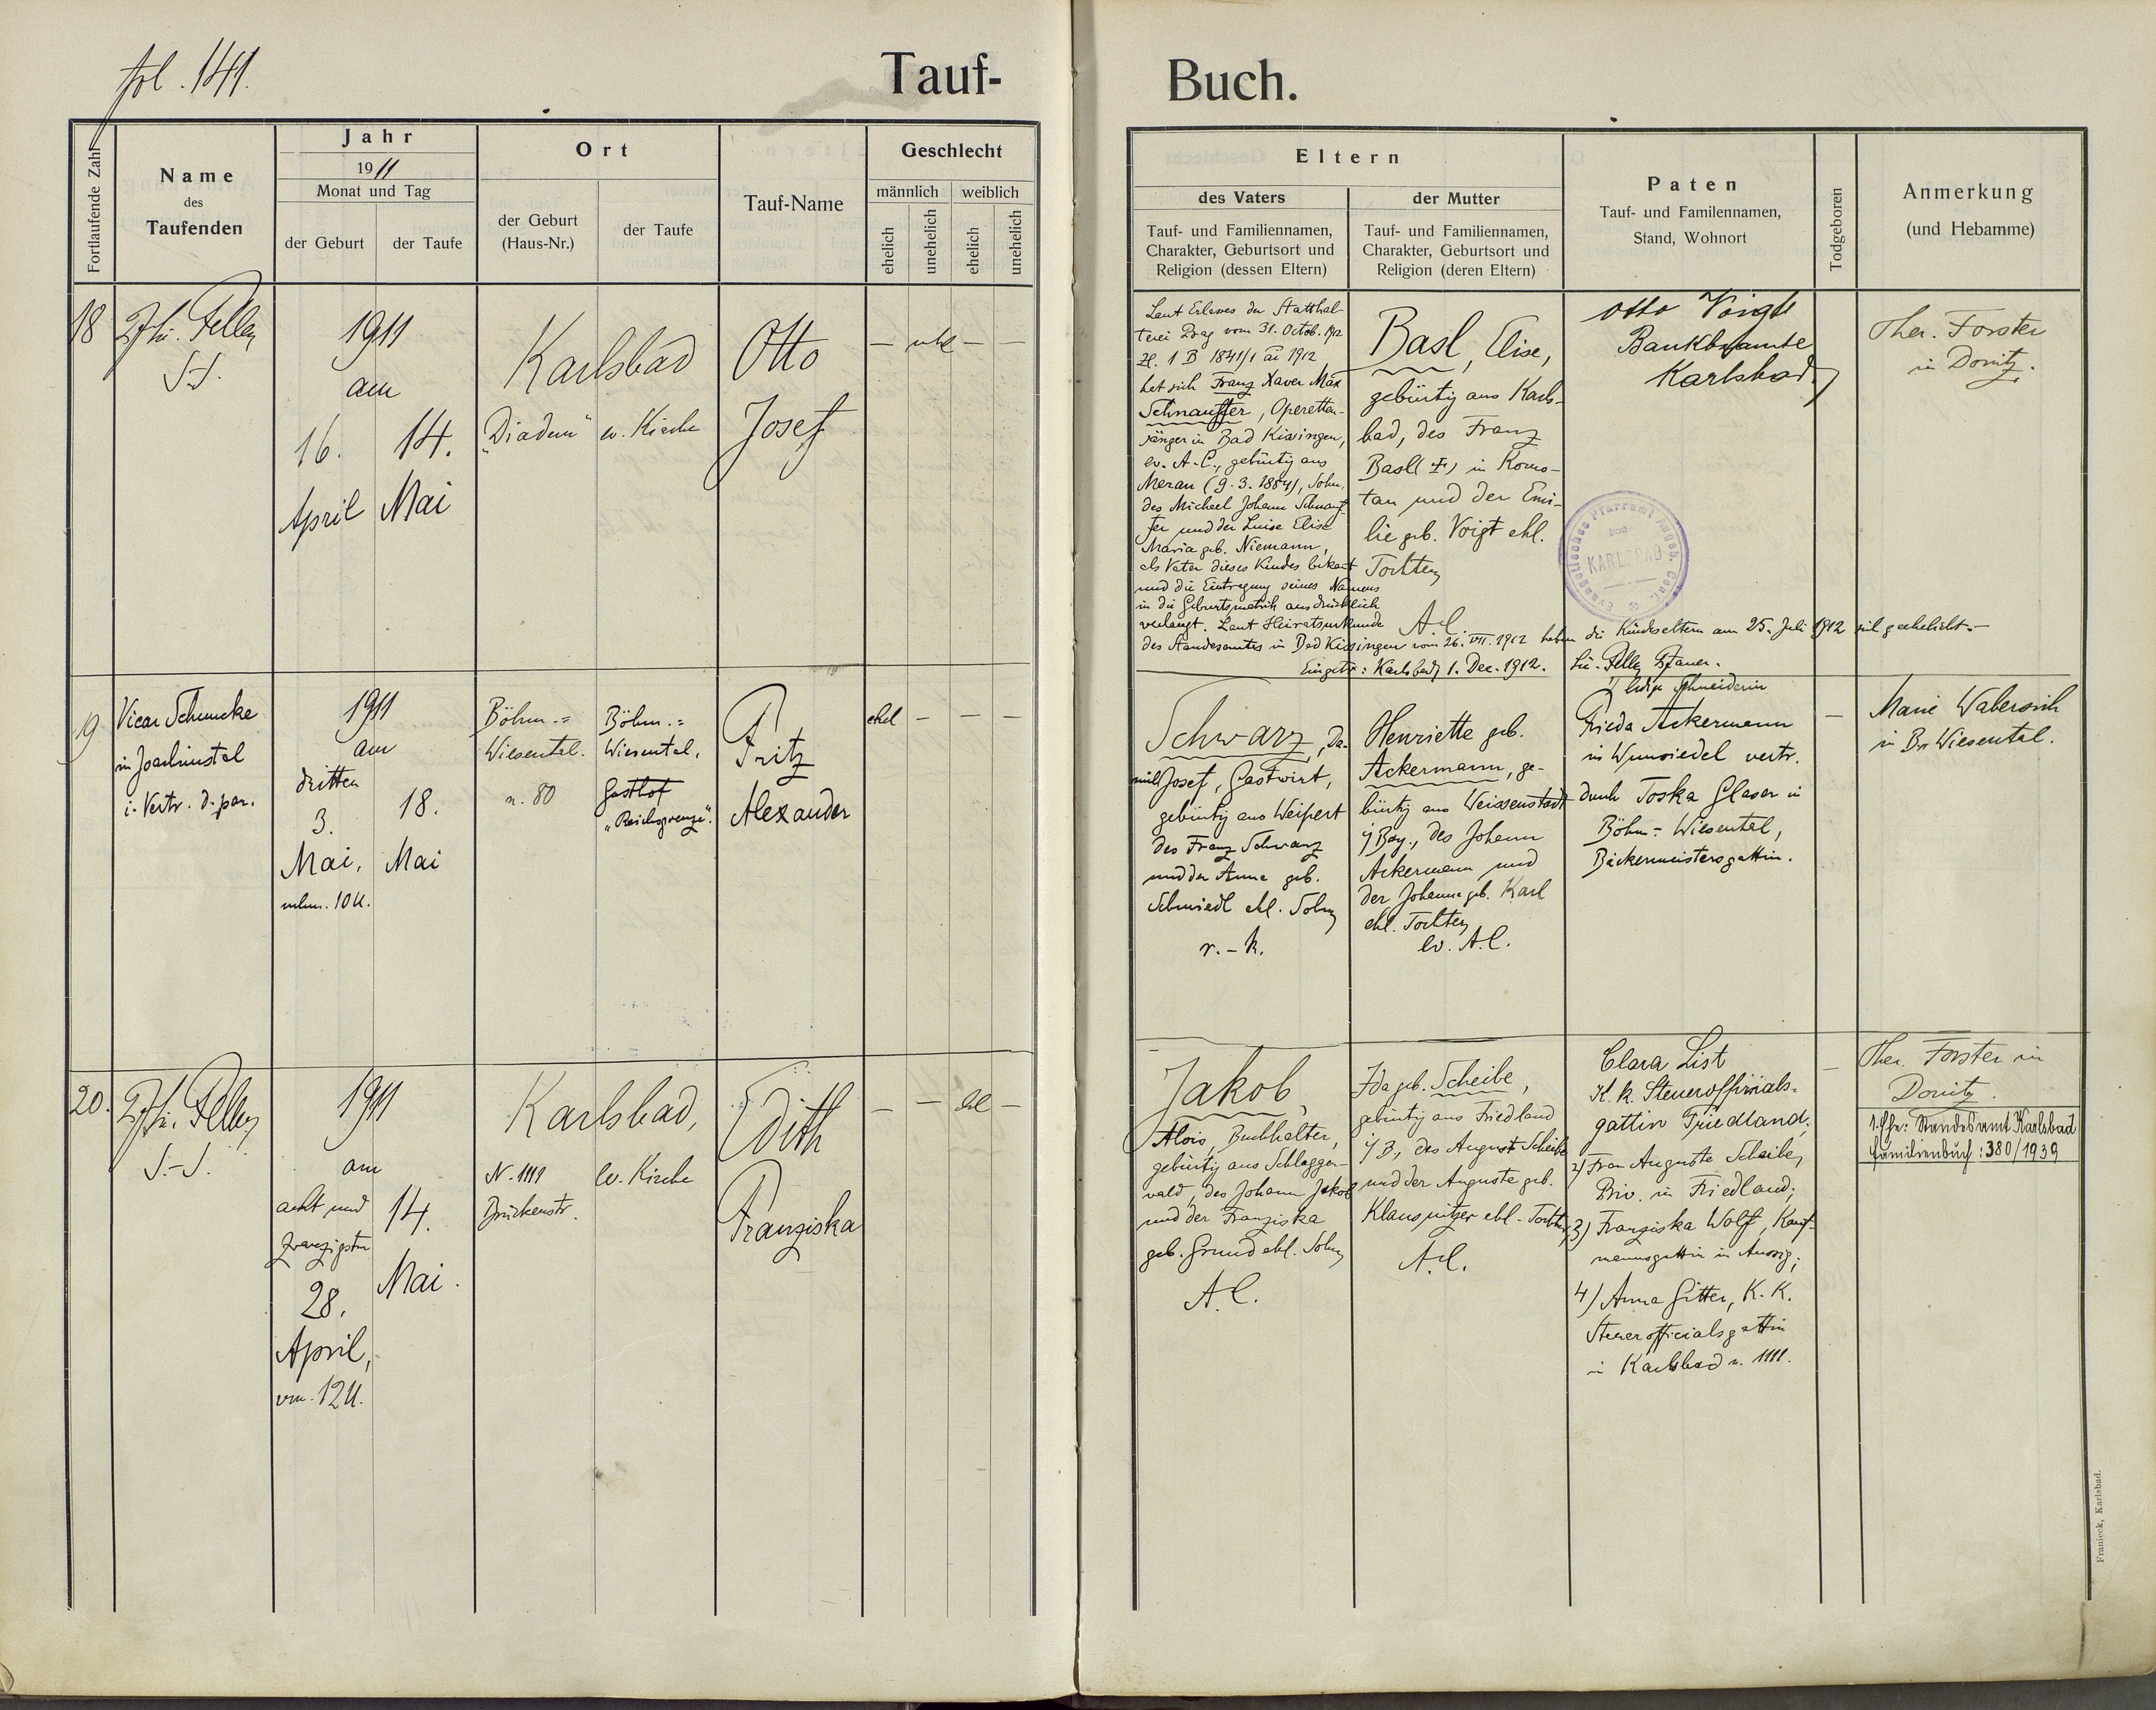 fol. 141.
Tauf-
Buch.
Fortlaufende Zahl
Name
des
Taufenden
Jahr
1911
Monat und Tag
der Geburt
der Taufe
Ort
der Geburt
(Haus-Nr.)
der Taufe
Tauf-Name
Geschlecht
männlich
weiblich
ehelich
unehelich
ehelich
unehelich
Eltern
des Vaters
Tauf- und Familiennamen,
Charakter, Geburtsort und
Religion (dessen Eltern)
der Mutter
Tauf- und Familiennamen,
Charakter, Geburtsort und
Religion (deren Eltern)
Paten
Tauf- und Familennamen,
Stand, Wohnort
Todgeboren
Anmerkung
(und Hebamme)
18
1911
am
16.
April
14.
Mai
Karlsbad
"Diadem"
ev. Kirche
Otto
Josef
— uhl — —
Laut Erlasses der Statthal-
terei Prag vom 31. Octob. 1912
Zl. 1 B 1841/1 ai 1912,
hat sich Franz Xaver Max
Schnauffer, Operetten-
sänger in Bad Kissingen,
ev. A.C., gebürtig aus
Meran (9.3.1884), Sohn
des Michael Johann Schnauf-
fer und der Luise Elise
Maria geb. Niemann,
als Vater dieses Kindes bekannt
und die Eintragung seines Namens
in die Geburtsmatrik ausdrücklich
verlangt. Laut Heiratsurkunde
des Standesamtes in Bad Kissingen vom 26. VII. 1912 haben die Kindseltern am 25. Juli 1912 sich geehelicht.—
Eingetr: Karlsbad, 1. Dec. 1912.
Lic. Pfarrer.
Basl, Elise,
gebürtig aus Karls-
bad, des Franz
Basl (†) in Komo-
tau und der Emi-
lie geb. Voigt ehl.
Tochter
A.C.
Otto Voigt
Bankbeamte
Karlsbad
Evangelisches Pfarramt Augsb. Conf.
KARLSBAD
Ther. Forster
in Donitz.
19
Vicar Schmucke
in Joachimstal
i. Vertr. d. par.
1911
am
dritten
3.
Mai,
nchm. 10 U.
18.
Mai
Böhm.-
Wiesental.
n. 80
Böhm.-
Wiesental,
Gasthof
"Reichsgrenze".
Fritz
Alexander
ehel — — —
Schwarz, Da-
mil Josef, Gastwirt,
gebürtig aus Weipert
des Franz Schwarz
und der Anna geb.
Schmiedl ehl. Sohn
r.-k.
Henriette geb.
Ackermann, ge-
bürtig aus Weissenstadt
i/Bay., des Johann
Ackermann und
der Johanna geb. Karl
ehl. Tochter
ev. A.C.
ledige Schneiderin
Frieda Ackermann
in Wunsiedel vertr.
durch Toska Glaser in
Böhm.-Wiesental,
Bäckermeistersgattin.
—
Marie Wabersich
in B. Wiesental.
20.
1911
am
acht und
zwanzigsten
28.
April,
vm. 12 U.
14.
Mai.
Karlsbad,
N. 1111
Brückenstr.
ev. Kirche
Edith
Franziska
— — ehl —
Jakob,
Alois, Buchhalter,
gebürtig aus Schlaggen-
wald, des Johann Jakob
und der Franziska
geb. Grund ehl. Sohn
A.C.
Ida geb. Scheibe,
gebürtig aus Friedland
i/B., des August Scheibe
und der Auguste geb.
Klausnitzer ehl. Tochter
A.C.
Clara List
K.k. Steueroffizials-
gattin Friedland;
2) Frau Auguste Scheibe,
Priv. in Friedland;
3) Franziska Wolf, Kauf-
mannsgattin in Aussig;
4) Anna Gitter, K.K.
Steuerofficialsgattin
in Karlsbad n. 1111.
—
Ther. Forster in
Donitz.
1. Ehe: Standesamt Karlsbad
Familienbuch: 380/1939
Franieck, Karlsbad.